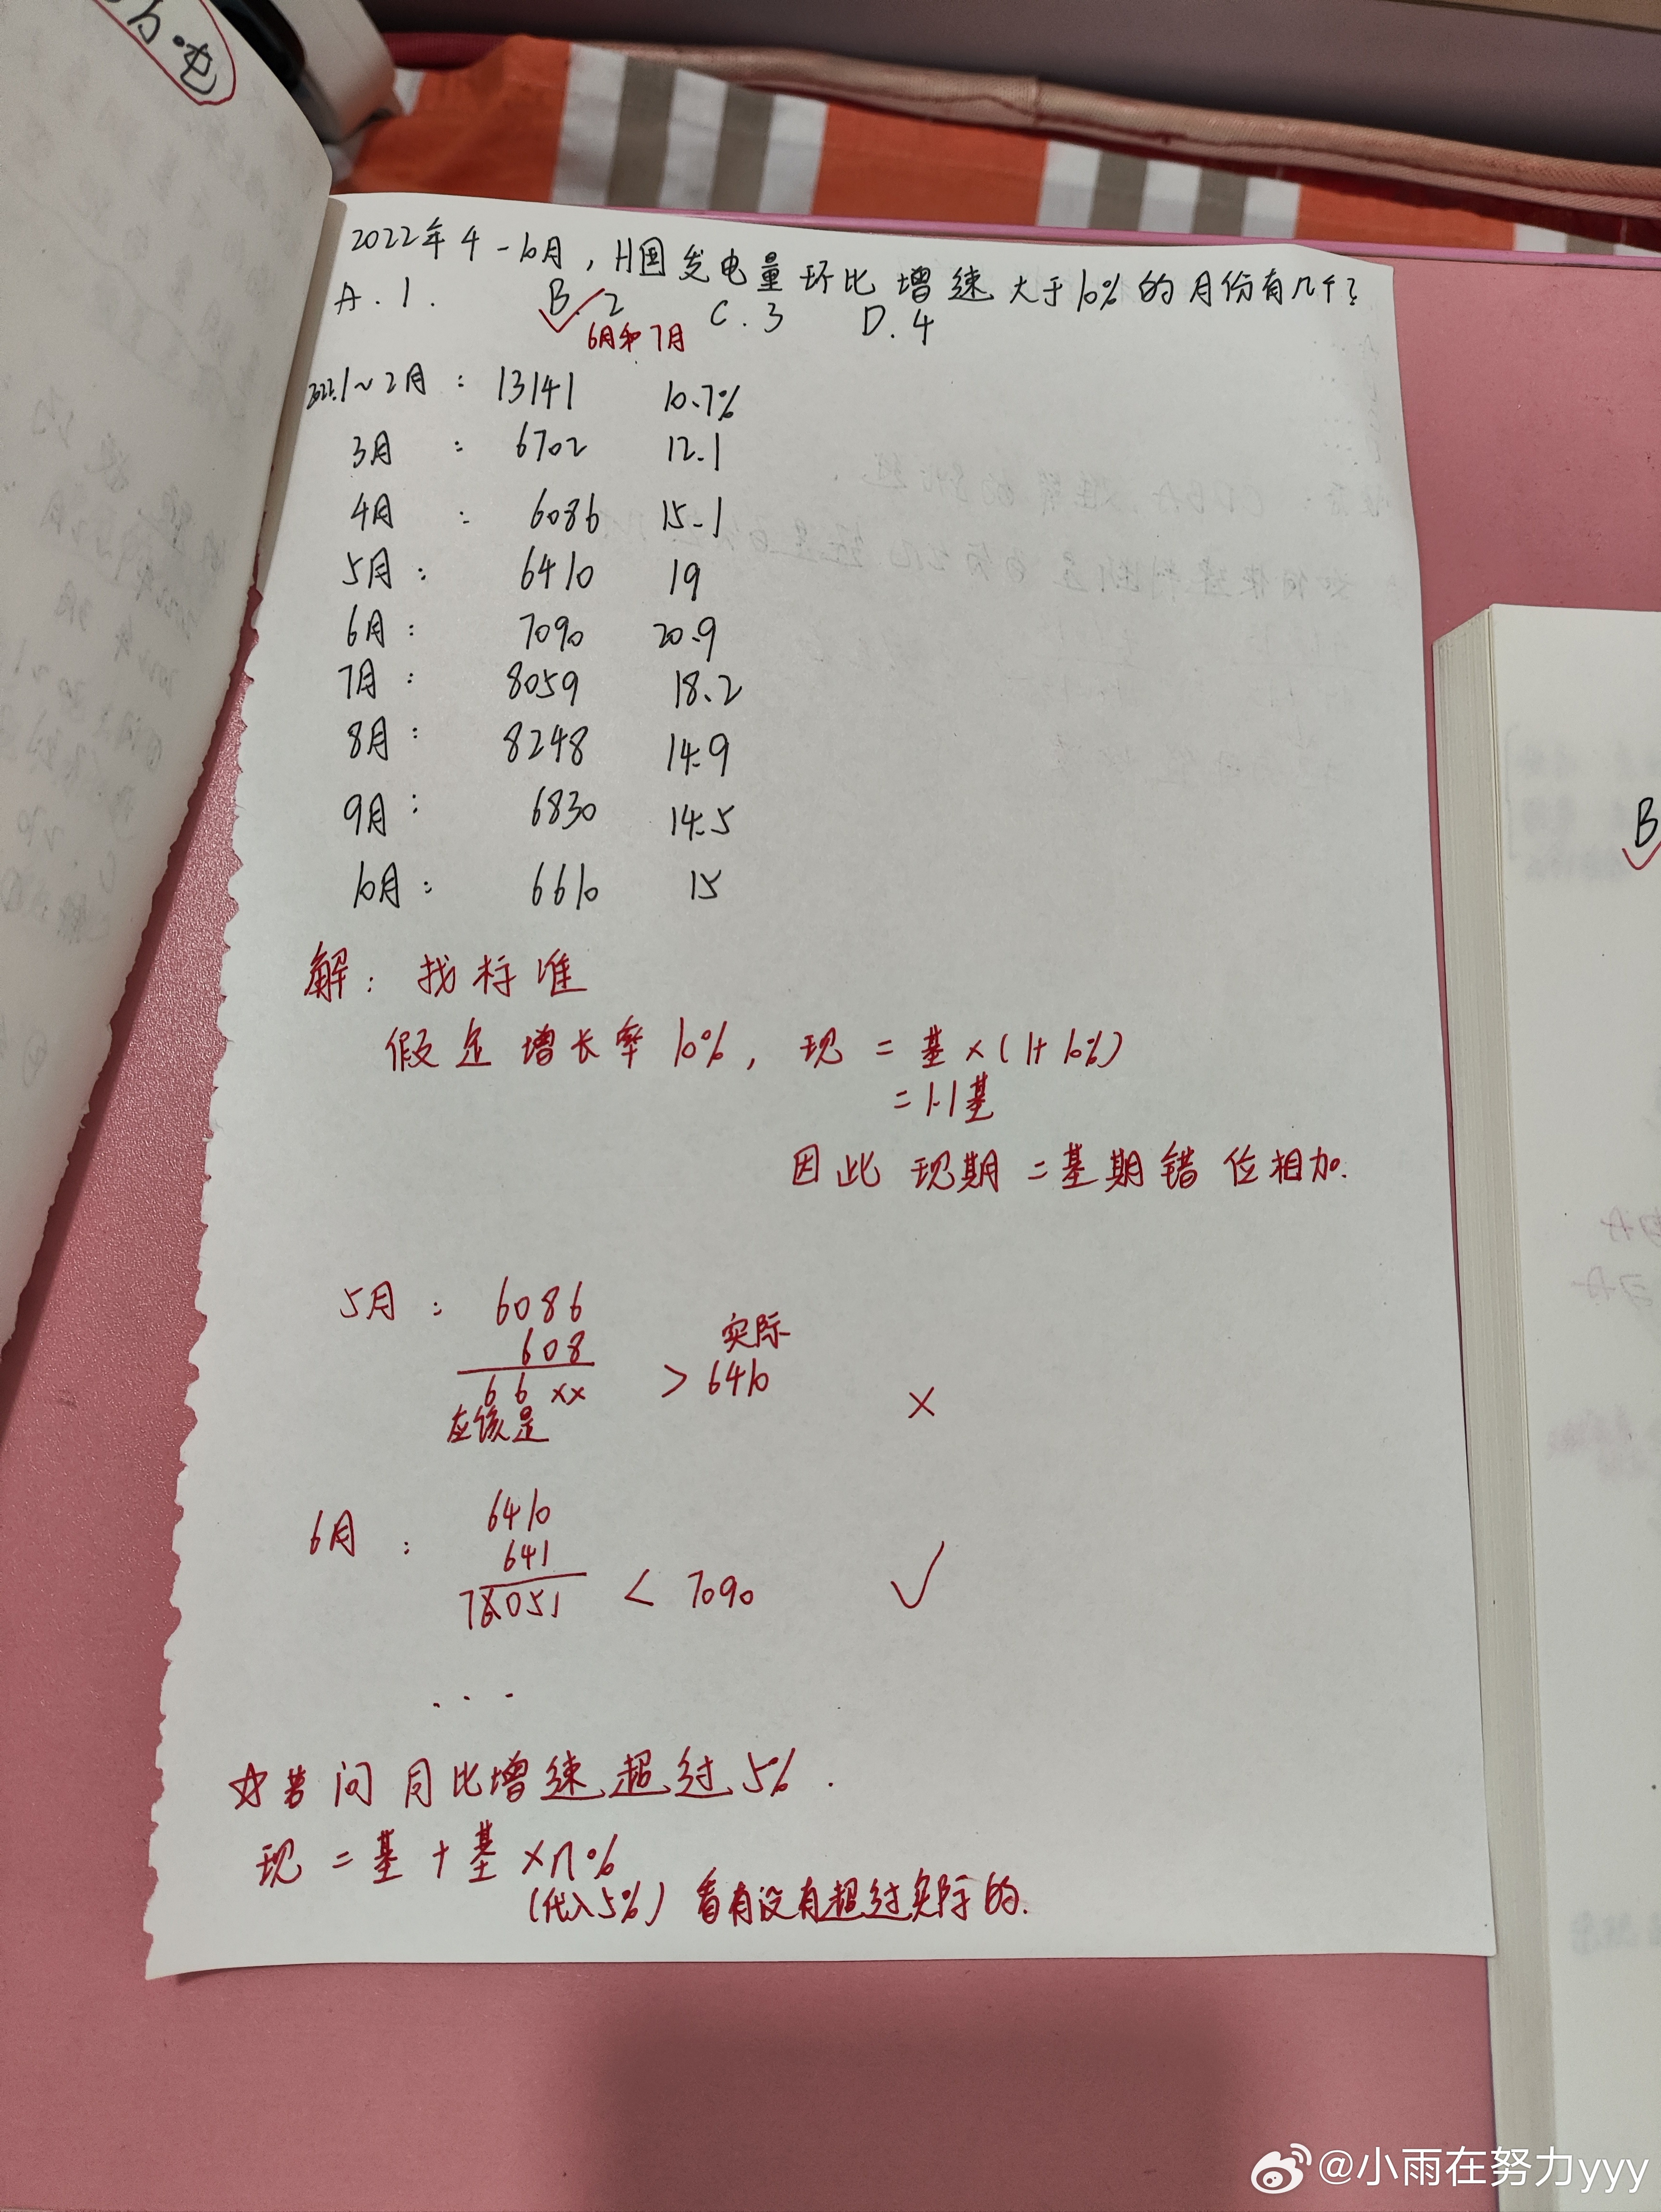 电
2022年4-10月,H国发电量环比增速大于10%的月份有几个?
A.1. B.2 C.3 D.4
6月和7月
2022.1~2月: 13141 10.7%
3月: 6702 12.1
4月: 6086 15.1
5月: 6410 19
6月: 7090 20.9
7月: 8059 18.2
8月: 8248 14.9
9月: 6830 14.5
10月: 6610 15
解: 找标准
假定增长率10%, 现=基×(1+10%)
=1.1基
因此现期=基期错位相加.
5月: 6086
608
实际
66×× > 6410 ×
应该是
6月: 6410
641
7051 < 7090 ✓
...
☆若问月比增速超过5%.
现=基+基×n%
(代入5%)看有没有超过实际的.
B
@小雨在努力yyy